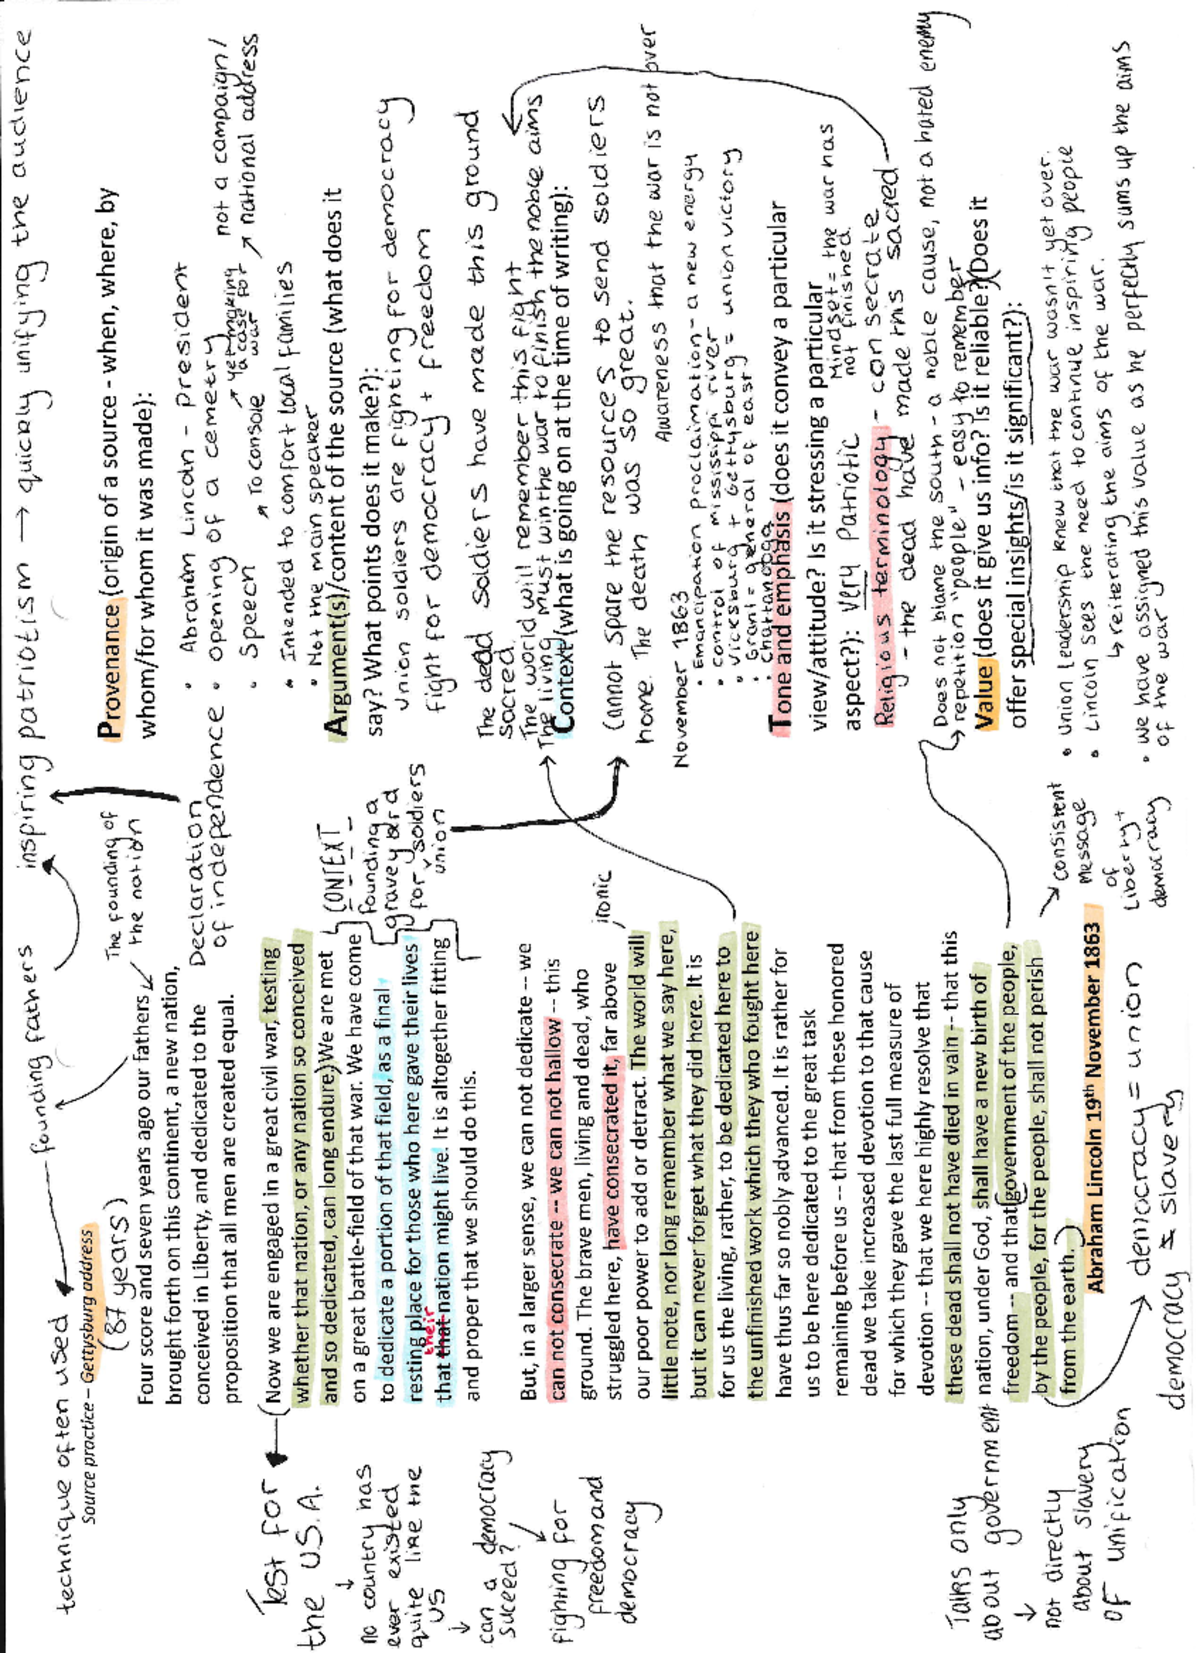 technique often used
founding fathers
inspiring patriotism → quickly unifying the audience
Source practice – Gettysburg address
(87 years)
The founding of
the nation
Four score and seven years ago our fathers
brought forth on this continent, a new nation,
conceived in Liberty, and dedicated to the
proposition that all men are created equal.
Declaration
of independence
Test for
the U.S.A.
↓
no country has
ever existed
quite like the
US
↓
can a democracy
suceed?
fighting for
freedom and
democracy
Now we are engaged in a great civil war, testing
whether that nation, or any nation so conceived
and so dedicated, can long endure. We are met
on a great battle-field of that war. We have come
to dedicate a portion of that field, as a final
resting place for those who here gave their lives
their
that that nation might live. It is altogether fitting
and proper that we should do this.
CONTEXT
founding a
graveyard
for soldiers
union
But, in a larger sense, we can not dedicate -- we
can not consecrate -- we can not hallow -- this
ground. The brave men, living and dead, who
struggled here, have consecrated it, far above
our poor power to add or detract. The world will
little note, nor long remember what we say here,
but it can never forget what they did here. It is
for us the living, rather, to be dedicated here to
the unfinished work which they who fought here
have thus far so nobly advanced. It is rather for
us to be here dedicated to the great task
remaining before us -- that from these honored
dead we take increased devotion to that cause
for which they gave the last full measure of
devotion -- that we here highly resolve that
these dead shall not have died in vain -- that this
nation, under God, shall have a new birth of
freedom -- and that government of the people,
by the people, for the people, shall not perish
from the earth.
ironic
Abraham Lincoln 19th November 1863
consistent
message
of
Liberty +
democracy
Talks only
about government
↓
not directly
about slavery
or unification
democracy = union
democracy ≠ slavery
Provenance (origin of a source - when, where, by
whom/for whom it was made):
• Abraham Lincoln - president
• opening of a cemetry
• Speech
To console
yet making
a case for
war
not a campaign/
national address
• Intended to comfort local families
• Not the main speaker
Argument(s)/content of the source (what does it
say? What points does it make?):
Union soldiers are fighting for democracy
fight for democracy + freedom
The dead soldiers have made this ground
Sacred.
The world will remember this fight
The living must win the war to finish the noble aims
Context (what is going on at the time of writing):
• Cannot spare the resources to send soldiers
home. The death was so great.
Awareness that the war is not over
November 1863
• Emancipation proclaimation - a new energy
• control of mississippi river
• Vicksburg + Gettysburg = union victory
• Grant = general of east
• Chattanooga
Tone and emphasis (does it convey a particular
view/attitude? Is it stressing a particular
aspect?): Very Patriotic
Mindset = the war has
not finished.
Religious terminology - consecrate
- the dead have made this sacred
Does not blame the south - a noble cause, not a hated enemy
repetition "people" - easy to remember
Value (does it give us info? Is it reliable? (Does it
offer special insights/is it significant?):
• Union leadership knew that the war wasn't yet over.
• Lincoln sees the need to continue inspiring people
↳ reiterating the aims of the war.
• we have assigned this value as he perfectly sums up the aims
of the war